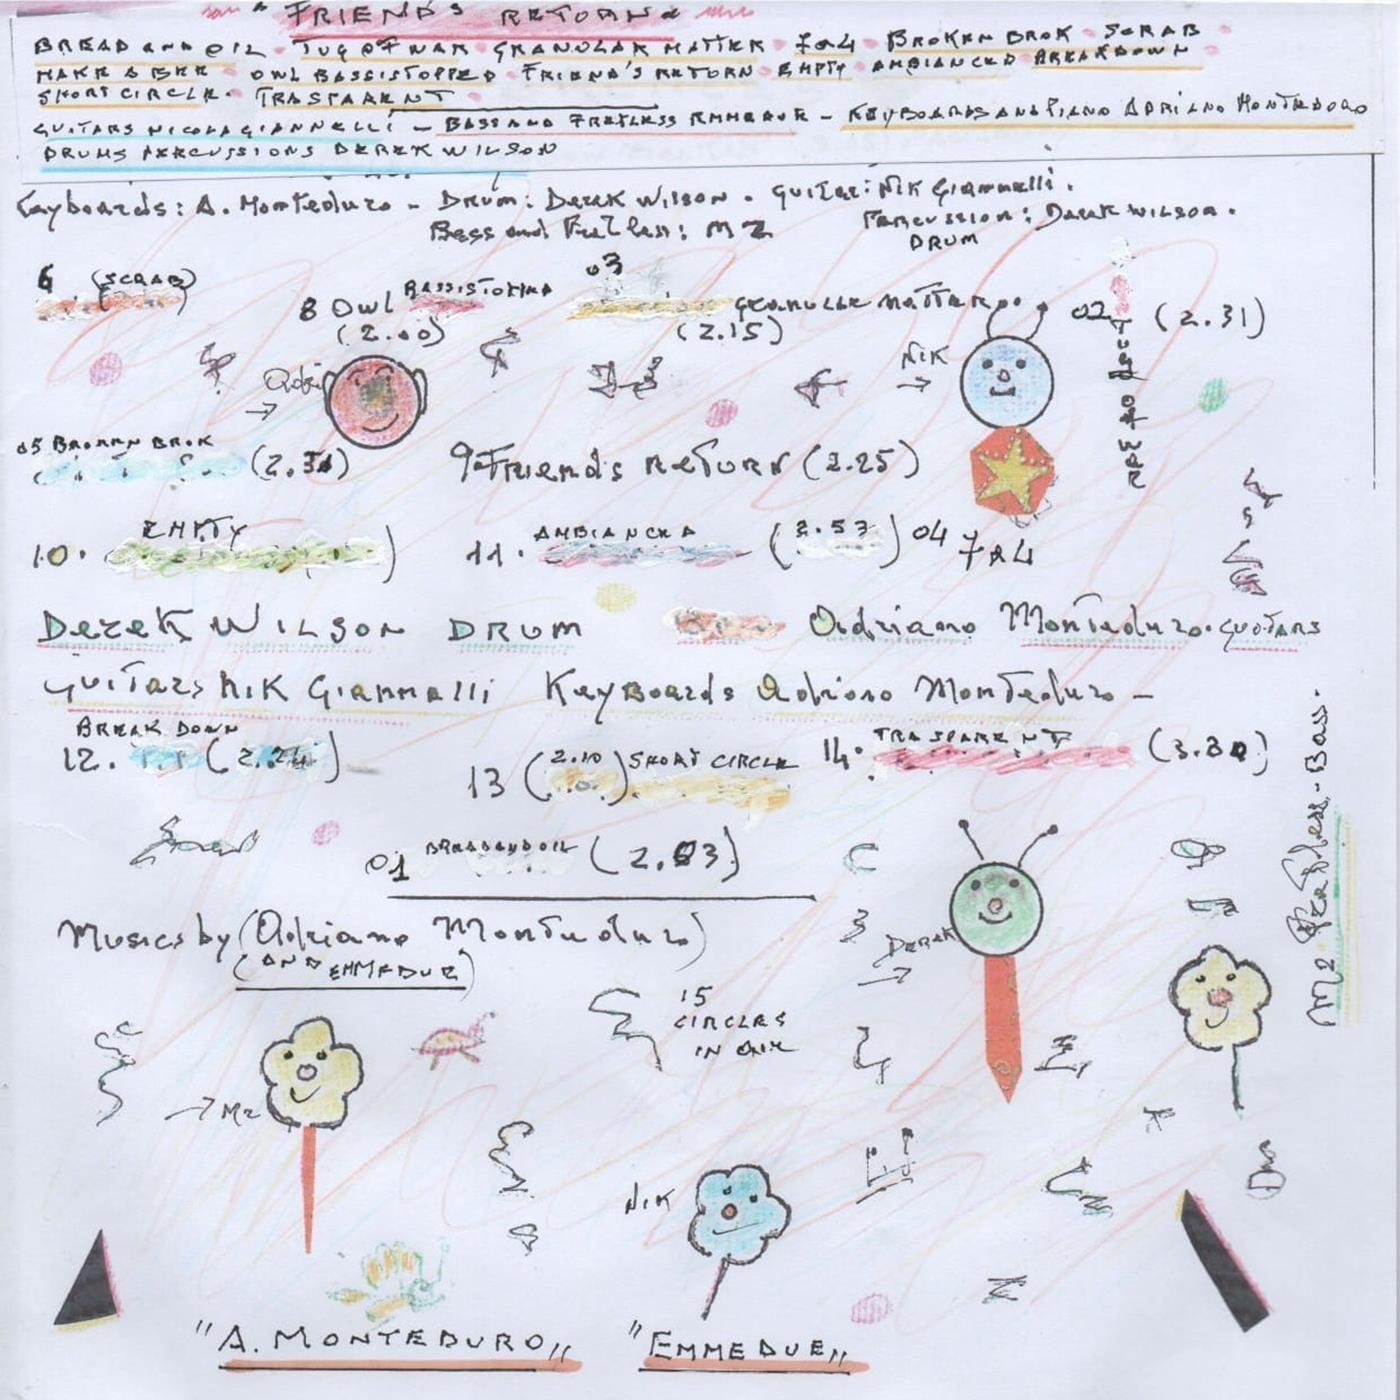 "FRIEND'S RETURN"
BREAD AND OIL · TUG OF WAR · GRANULAR MATTER · 7 & 4 · BROKEN BROK · SCRAB
MAKE A BEE · OWL BASSISTOPPED · FRIEND'S RETURN · EMPTY · AMBIANCED · BREAKDOWN
SHORT CIRCLE · TRASPARENT
GUITARS NICOLA GIANNELLI - BASS AND FRETLESS EMMEDUE - KEYBOARDS AND PIANO ADRIANO MONTEDURO
DRUMS PERCUSSIONS DEREK WILSON
Keyboards: A. Monteduro - Drum: Derek Wilson. guitar: Nik Giannelli.
Bass and Fretless: M2
Percussion: Derek Wilson.
DRUM
6 (SCRAB)
8 Owl
(2.00)
03
(2.15)
02 TUG OF WAR (2.31)
Adri
NIK
05 BROKEN BROK
9 Friend's Return (2.25)
10. EMPTY
11. (2.53)
04 7 & 4
Derek Wilson DRUM
Adriano Monteduro. guitars
guitars Nik Giannelli Keyboards Adriano Monteduro -
12. BREAK DOWN (2.24)
13 (2.10) SHORT CIRCLE
14. TRASPARENT
01 BREAD AND OIL
Musics by (Adriano Monteduro)
(AND EMMEDUE)
DEREK
M2 Fretless - Bass.
15
CIRCLES
IN ONE
M2
NIK
"A. MONTEDURO"
"EMMEDUE"